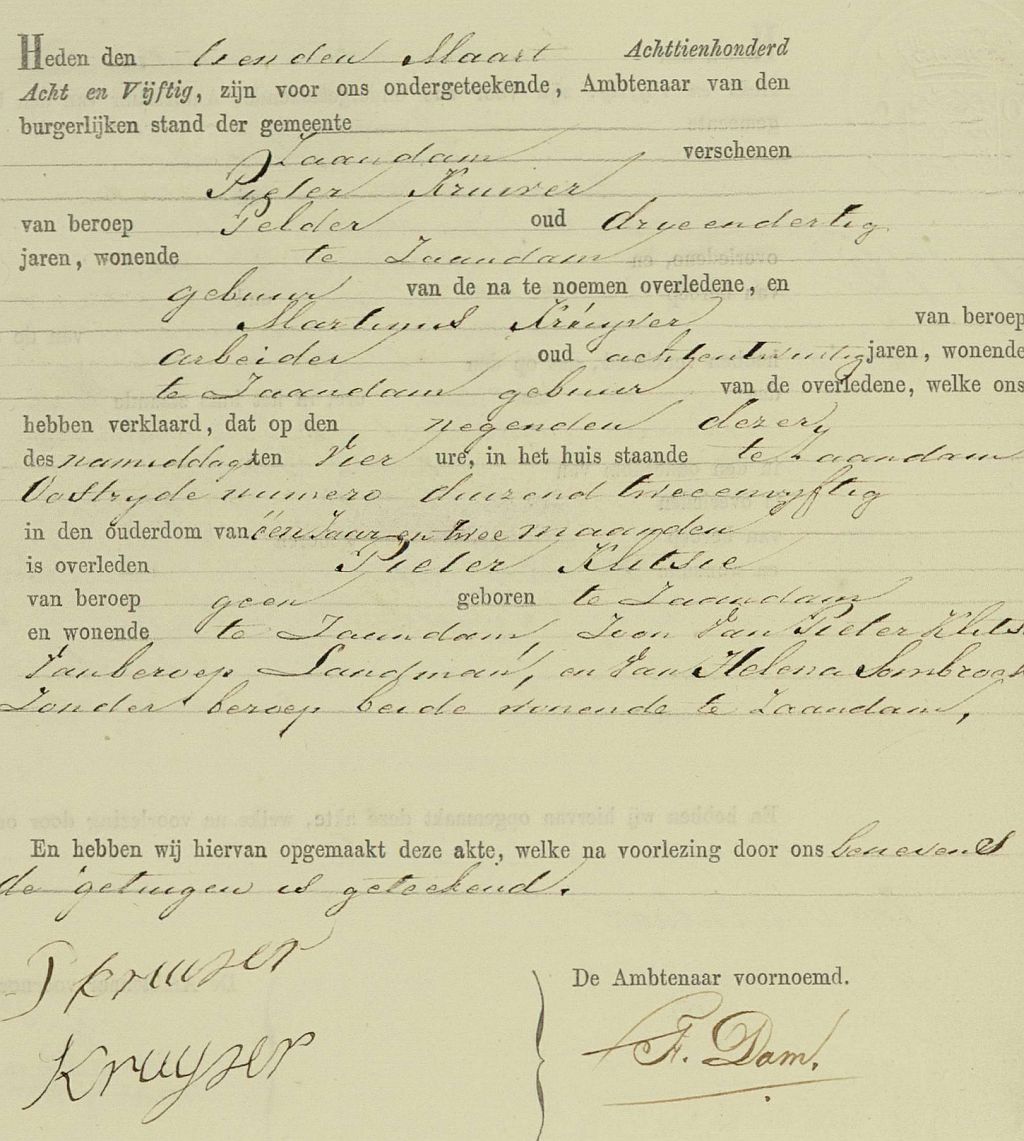 Heden den tienden Maart Achttienhonderd
Acht en Vijftig, zijn voor ons ondergeteekende, Ambtenaar van den
burgerlijken stand der gemeente
Zaandam verschenen
Pieter Kruiver
van beroep Pelder oud dryeendertig
jaren, wonende te Zaandam
gebuur van de na te noemen overledene, en
Martinus Kruyver van beroep
arbeider oud achtentwintig jaren, wonende
te Zaandam gebuur van de overledene, welke ons
hebben verklaard, dat op den negenden dezer,
des namiddags ten Vier ure, in het huis staande te Zaandam
Oostzyde numero duizend tweeenvyftig
in den ouderdom van één Jaar en twee maanden
is overleden Pieter Klitsie
van beroep geen geboren te Zaandam
en wonende te Zaandam, Zoon Van Pieter Klits
Van beroep Landman, en Van Helena Sombroek
Zonder beroep beide wonende te Zaandam,
En hebben wij hiervan opgemaakt deze akte, welke na voorlezing door ons benevens
de getuigen is geteekend.
P Kruyver
De Ambtenaar voornoemd.
Kruyver
F. Dam.